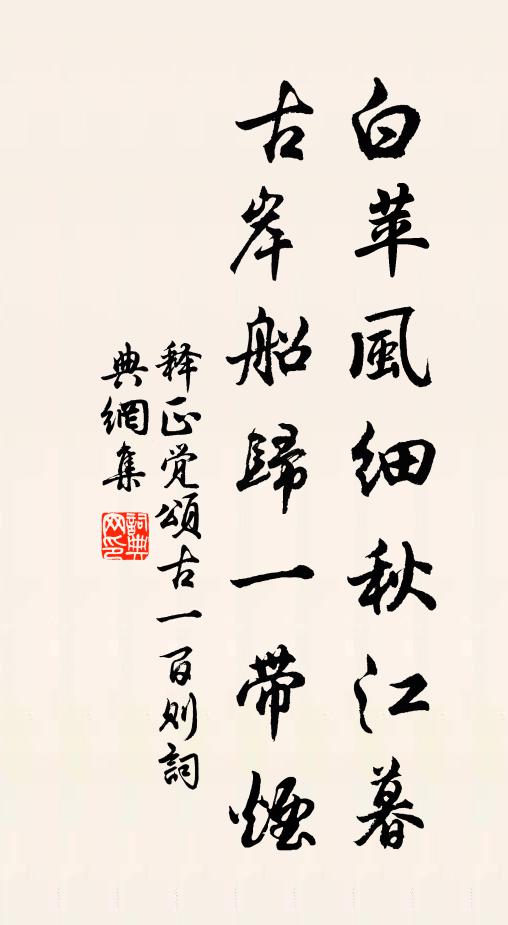 白苹風细秋江暮
古岸船歸一带煙
释正觉頌古一百则詞
典網集
詞典
网印